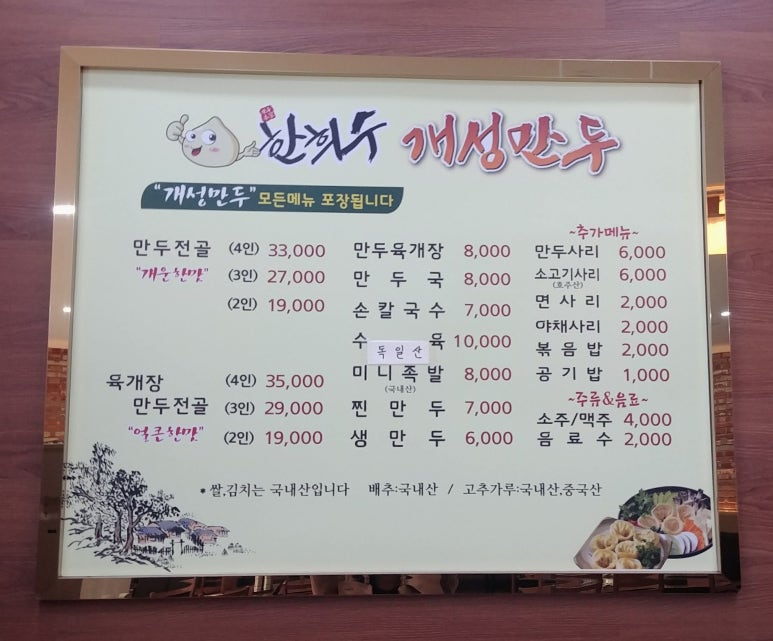 한희수 개성만두
"개성만두" 모든메뉴 포장됩니다
만두전골 (4인) 33,000
"개운한맛" (3인) 27,000
(2인) 19,000
육개장 (4인) 35,000
만두전골 (3인) 29,000
"얼큰한맛" (2인) 19,000
만두육개장 8,000
만 두 국 8,000
손 칼 국 수 7,000
수 육 10,000
독 일 산
미 니 족 발 8,000
(국내산)
찐 만 두 7,000
생 만 두 6,000
~추가메뉴~
만두사리 6,000
소고기사리 6,000
(호주산)
면 사 리 2,000
야채사리 2,000
볶 음 밥 2,000
공 기 밥 1,000
~주류&음료~
소주/맥주 4,000
음 료 수 2,000
* 쌀,김치는 국내산입니다 배추:국내산 / 고추가루:국내산,중국산